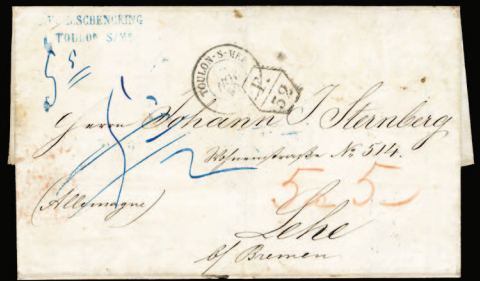 SCHENCKING
TOULON S/MER
5 5
TOULON-S-MER
F.
52
Herrn Johann J. Sternberg
No 514.
5 5
(Allemagne)
Lehe
b/ Bremen